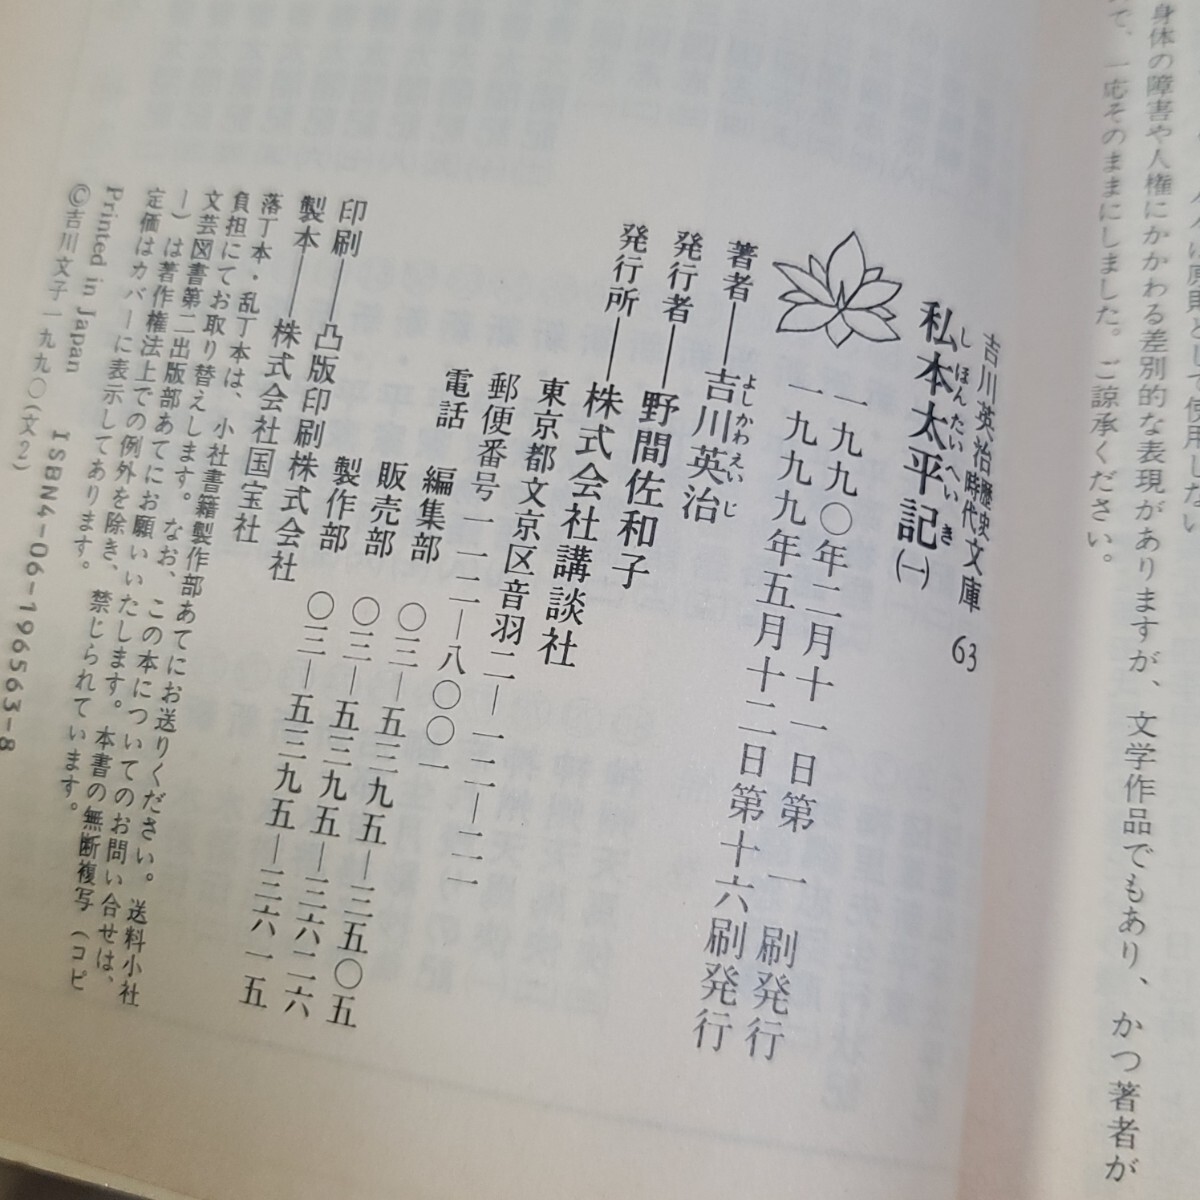 身体の障害や人権にかかわる差別的な表現がありますが、文学作品でもあり、かつ著者が
一応そのままにしました。ご諒承ください。
吉川英治歴史時代文庫 63
私本太平記(一)
しほんたいへいき
一九九〇年二月十一日第一刷発行
一九九九年五月十二日第十六刷発行
著者——吉川英治
よしかわえいじ
発行者——野間佐和子
発行所——株式会社講談社
東京都文京区音羽二—一二—二一
郵便番号一一二—八〇〇一
電話 編集部 〇三—五三九五—三五〇五
販売部 〇三—五三九五—三六二六
製作部 〇三—五三九五—三六一五
印刷——凸版印刷株式会社
製本——株式会社国宝社
落丁本・乱丁本は、小社書籍製作部あてにお送りください。送料小社
負担にてお取り替えします。なお、この本についてのお問い合せは、
文芸図書第二出版部あてにお願いいたします。本書の無断複写(コピ
ー)は著作権法上での例外を除き、禁じられています。
定価はカバーに表示してあります。
Printed in Japan ISBN4-06-196563-8
©吉川文子一九九〇(文2)